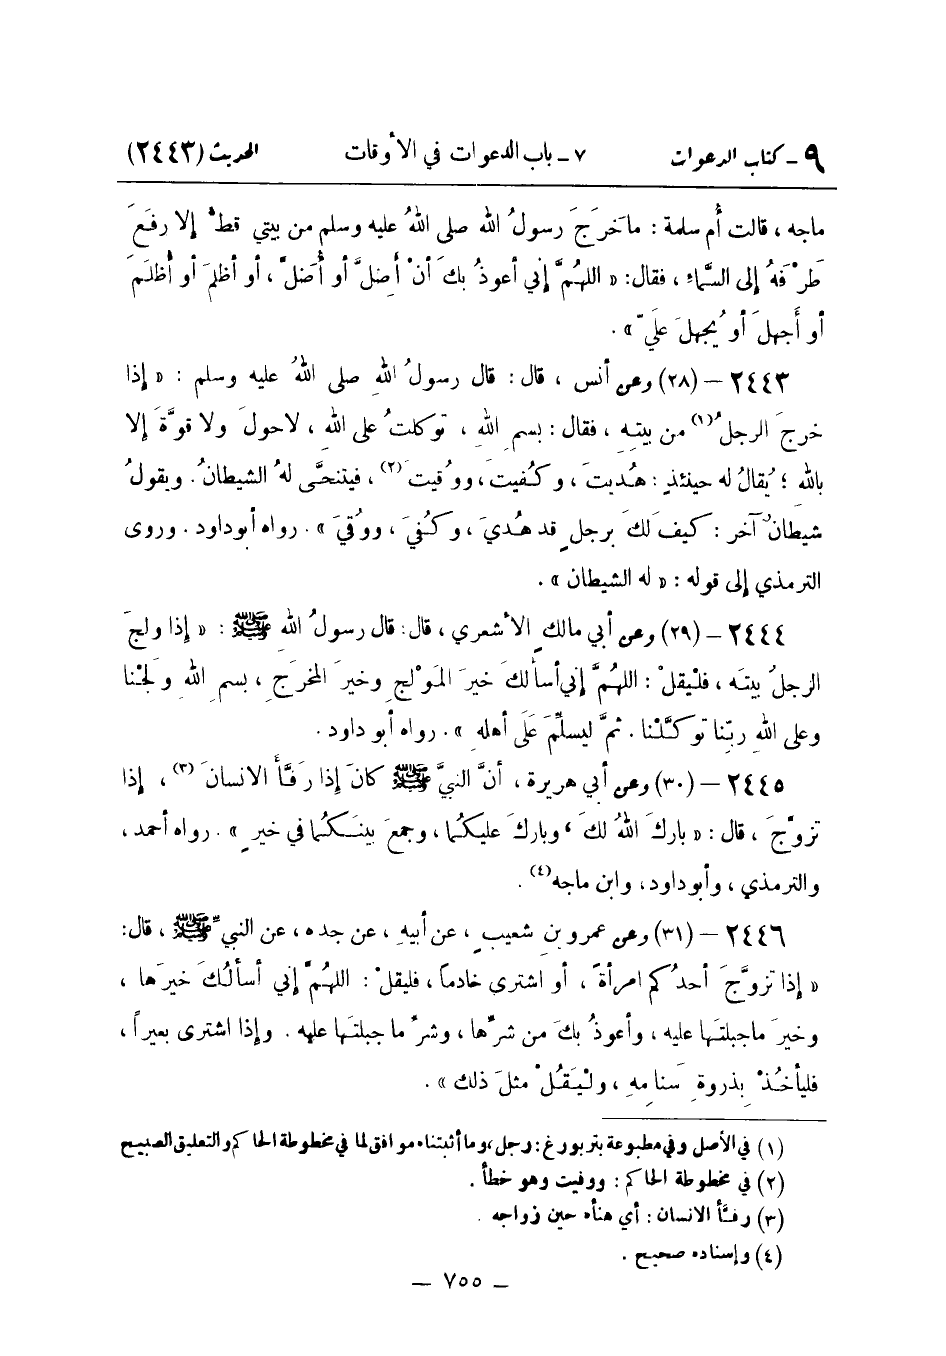 ٩ـ كتاب الدعوات ٧ـ باب الدعوات في الأوقات الحديث (٢٤٤٣)
ماجه ، قالت أُم سلمة : ماَ خرجَ رسولُ الله صلى اللهُ عليه وسلم من بيتي قطْ إلا رفَعَ
طرْفَهُ إلى السَّماء ، فقال: « اللهُمَّ إني أعوذُ بكَ أنْ أَضِلَّ أو أُضَلَّ ، أو أظلِمَ أو أُظلَمَ
أو أَجهلَ أو يُجهلَ علَيَّ » .
٢٤٤٣ – (٢٨) وعن أنس ، قال : قال رسولُ اللهِ صلى اللهُ عليه وسلم : « إذا
خرجَ الرجلُ(١) من بيتِهِ ، فقال : بسمِ اللهِ ، توكلتُ على اللهِ ، لاحولَ ولا قوَّةَ إلا
باللهِ ؛ يُقالُ له حينئذٍ : هُديتَ ، وكُفيتَ، ووُقيتَ(٢) ، فيتنحَّى لهُ الشيطانُ. ويقولُ
شيطانٌ آخر : كيفَ لكَ برجلٍ قد هُديَ ، وكُفيَ ، ووُقيَ » . رواه أبوداود . وروى
الترمذي إلى قوله : « له الشيطان » .
٢٤٤٤ – (٢٩) وعن أبي مالكٍ الأشعري ، قال: قال رسولُ اللهِ ﷺ : « إذا ولجَ
الرجلُ بيتَه ، فلْيقلْ : اللهُمَّ إني أسألكَ خيرَ المَوْلجِ وخيرَ المَخرجِ ، بسمِ اللهِ وَلَجْنا
وعلى اللهِ ربِّنا توكَّلْنا . ثمَّ ليسلِّمَ عَلَى أهلهِ » . رواه أبو داود .
٢٤٤٥ – (٣٠) وعن أبي هريرة ، أنَّ النبيَّ ﷺ كانَ إذا رفَّأَ الانسانَ (٣) ، إذا
تزوَّجَ ، قال : « باركَ اللهُ لكَ ، وباركَ عليكُما ، وجمعَ بينَكُما في خيرٍ » . رواه أحمد ،
والترمذي ، وأبوداود، وابن ماجه(٤) .
٢٤٤٦ – (٣١) وعن عمرو بنِ شعيبٍ ، عن أبيهِ ، عن جده ، عن النبيِّ ﷺ ، قال:
« إذا تزوَّجَ أحدُكم امرأةً ، أو اشترى خادماً ، فليقلْ : اللهُمَّ إني أسألُكَ خيرَها ،
وخيرَ ماجبلتَها عليه ، وأعوذُ بكَ من شرِّها ، وشرِّ ما جبلتَها عليه . وإذا اشترى بعيراً ،
فليأخُذْ بذروةِ سَنامهِ ، ولْيقُلْ مثلَ ذلك » .
(١) في الأصل وفي مطبوعة بتربورغ : رجل ، وما أثبتناه موافق لما في مخطوطة الحاكم والتعليق الصبيح
(٢) في مخطوطة الحاكم : ووفيت وهو خطأ .
(٣) رفَّأ الانسان : أي هنأه حين زواجه .
(٤) وإسناده صحيح .
– ٧٥٥ –